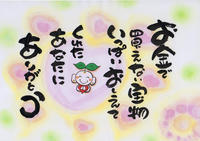 お金で
買えない宝物
いっぱいおしえて
くれた
あなたに
ありがとう